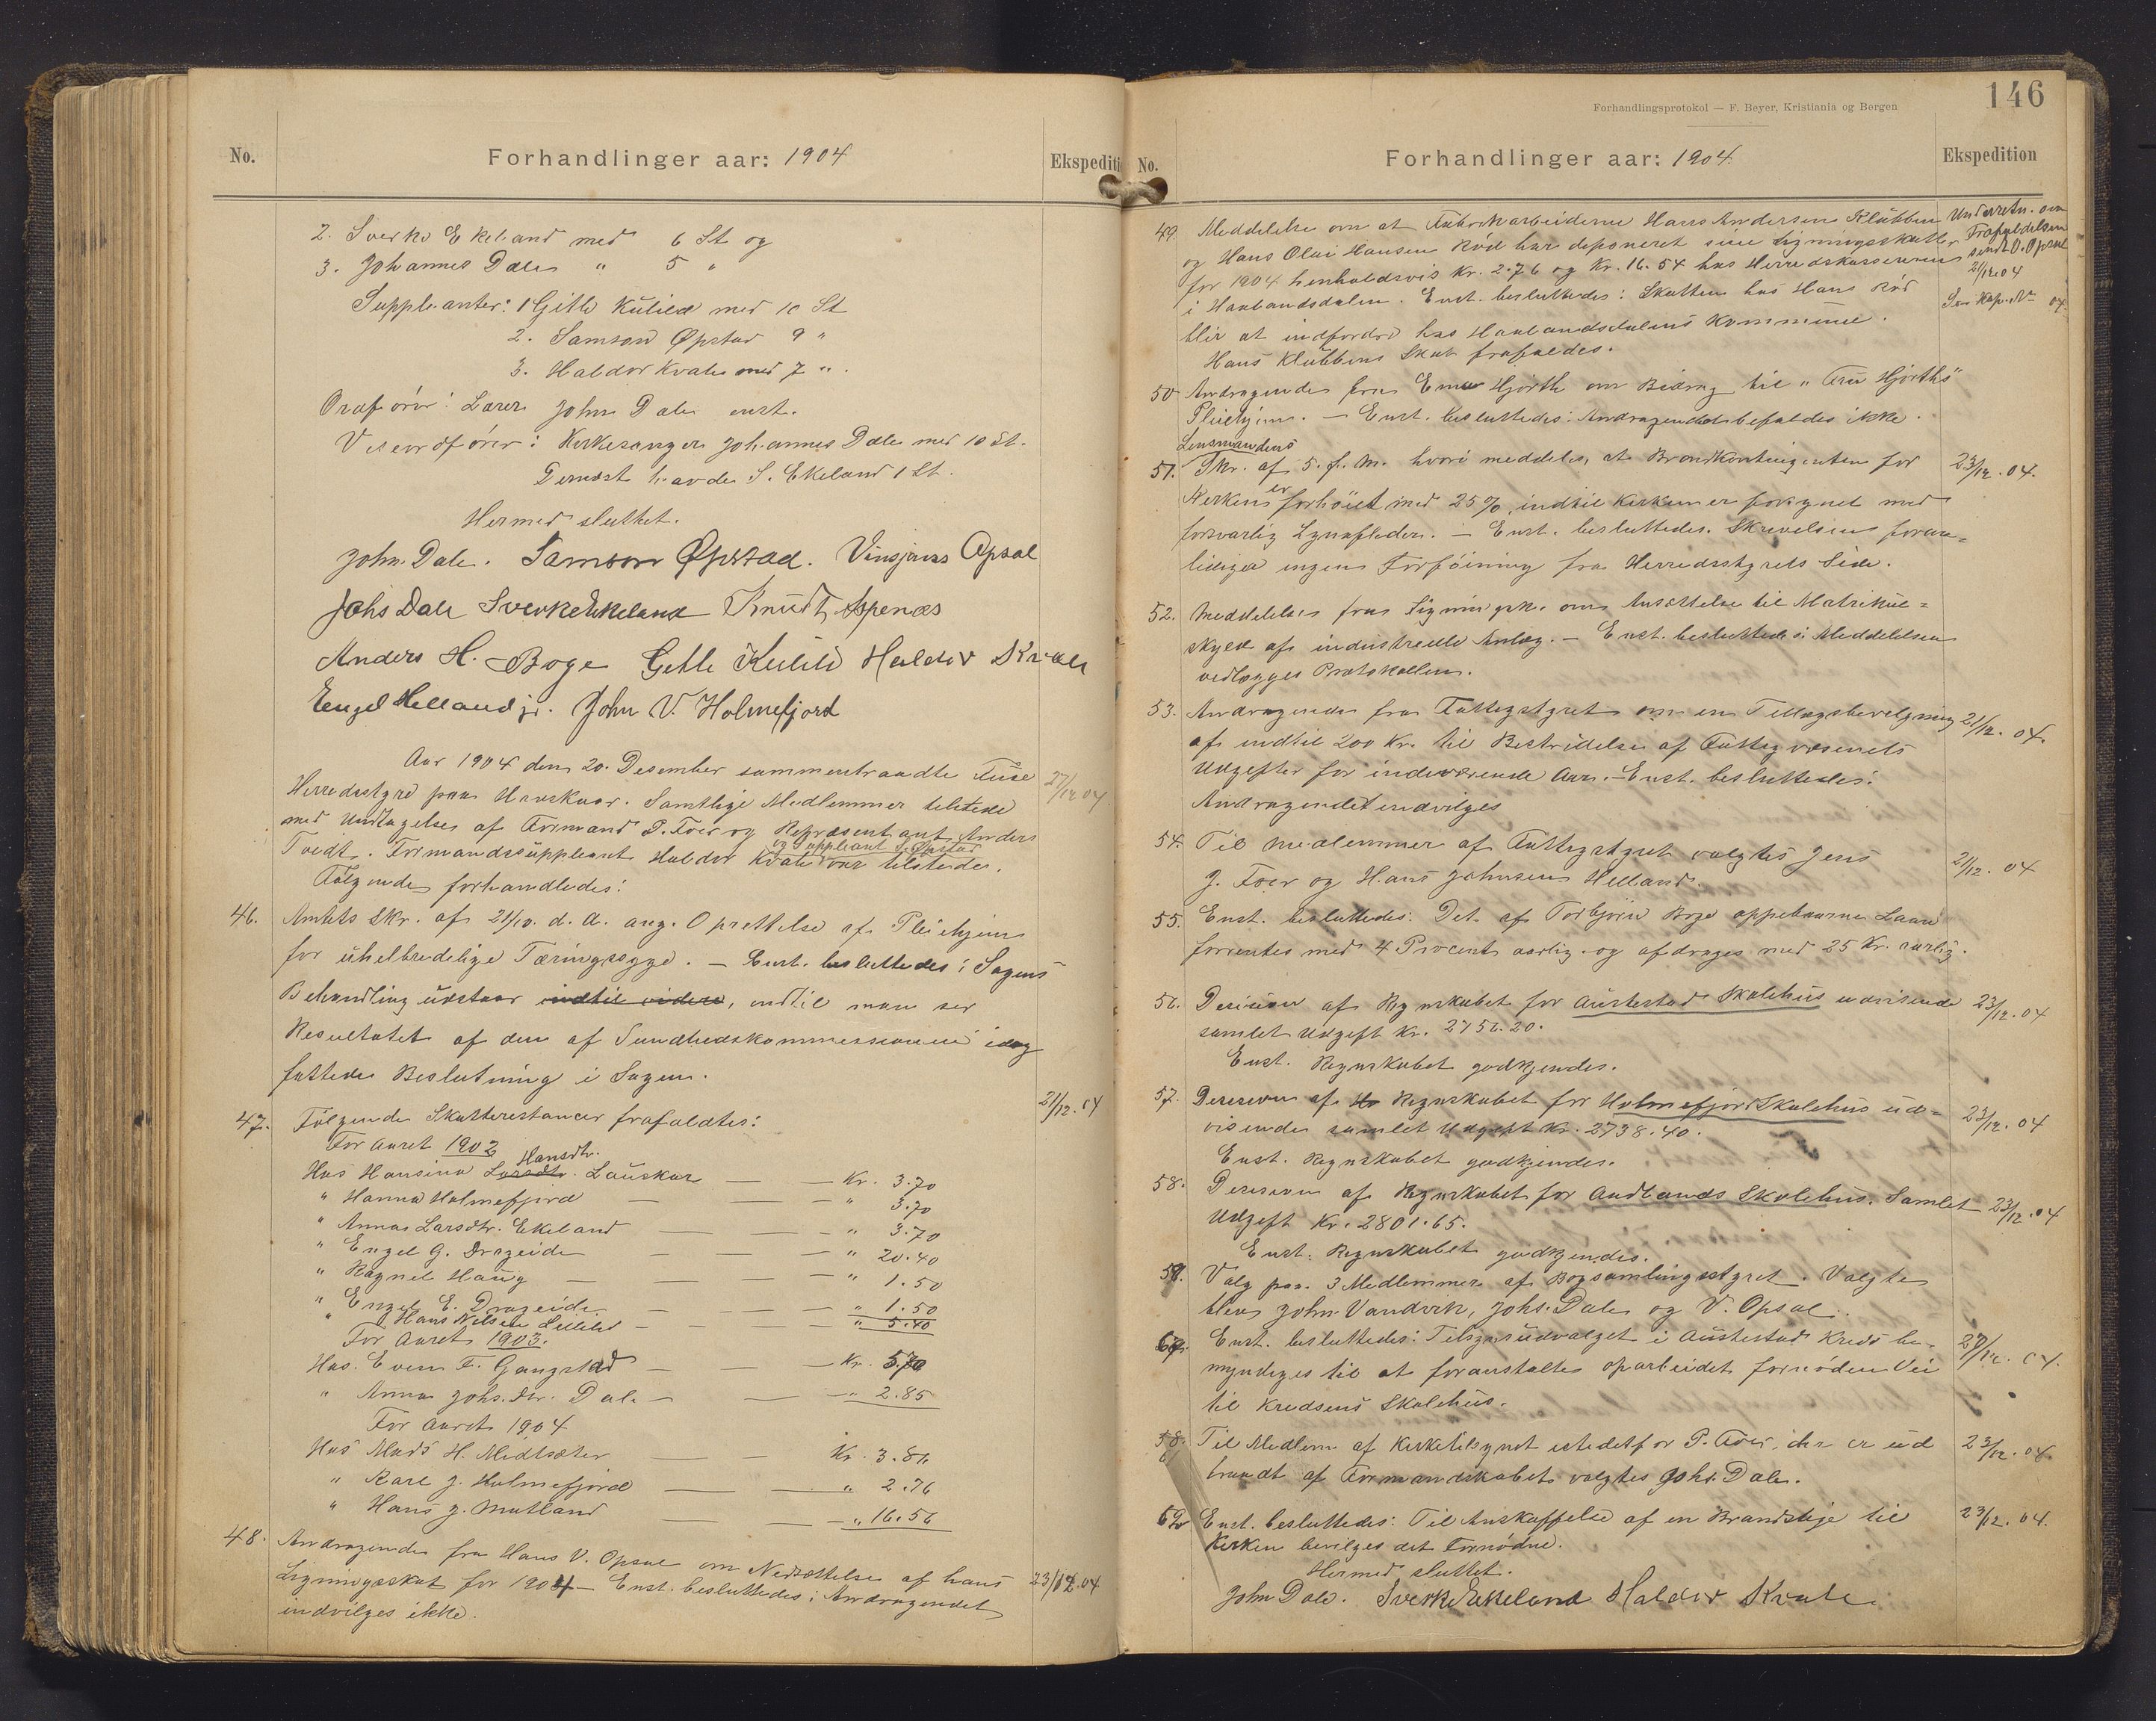 No.
Forhandlinger aar: 1904
Ekspediti
2. Sverke Ekeland med 6 St og
3. Johannes Dale " 5 "
Suppleanter: 1 Gitle Kulild med 10 St
2. Samson Øpstad 9 "
3. Haldor Kvale med 7 ".
Ordfører: Lærer John Dale enst.
Viseordfører: Kirkesanger Johannes Dale med 10 St.
Dernæst havde S. Ekeland 1 St.
Hermed sluttet.
John Dale. Samson Øpstad. Vinsjans Opsal
Johs Dale Sverke Ekeland Knudt Apenæs
Anders H. Boge Gitle Kulild Haldor Kvale
Engel Helland jr. John V. Holmefjord
Aar 1904 den 20. Desember sammentraadte Fuse
Herredsstyre paa Havskaar. Samtlige Medlemmer tilstede
med Undtagelse af Formand P. Foer og Repræsentant Anders
Tveidt. Formandssuppleant Haldor Kvale og Suppleant S. Øpstad var tilstede.
27/12 04
Følgende forhandledes:
46. Amtets Skr. af 21/10. d. A. ang. Oprettelse af Pleiehjem
for uhelbredelige Tæringssyge. – Enst. besluttedes: Sagens
Behandling udstaar indtil videre, indtil man ser
Resultatet af den af Sundhedskommissionen idag
fattede Beslutning i Sagen.
21/12. 04
47. Følgende Skatterestancer frafaldtes:
For Aaret 1902
Hos Hansina Larsdtr. Hansdtr. Lauskar — — Kr. 3.70
" Hanna Holmefjord — — " 3.70
" Anna Larsdtr. Ekeland — — " 3.70
" Engel G. Drageide — — " 20.40
" Ragnel Haug — — — " 1.50
" Engel E. Drageide — — — " 1.50
" Hans Nilsen — — — " 5.40
For Aaret 1903.
Hos. Even F. Gangstad — — Kr. 5.70
" Anna Johs.dtr. Dale — — " 2.85
For Aaret 1904
Hos Mads H. Midtsæter — — Kr. 3.86
" Karl J. Holmefjord — — " 2.76
" Hans J. Mutland — — " 16.56
48. Andragende fra Hans V. Opsal om Nedsættelse af hans
Ligningsskat for 1904 – Enst. besluttedes: Andragendet
indvilges ikke.
23/12.04
Forhandlingsprotokol — F. Beyer, Kristiania og Bergen
146
No.
Forhandlinger aar: 1904
Ekspedition
49. Meddelelse om at Fabrikarbeiderne Hans Andersen Klubben
og Hans Olai Hansen Rød har deponeret sine Ligningsskatter
for 1904 henholdsvis Kr. 2.76 og Kr. 16.54 hos Herredskassereren
i Haalandsdalen. Enst. besluttedes: Skatten hos Hans Rød
blir at indfordre hos Haalandsdalens Kommune.
Hans Klubbens Skat frafaldes.
Underretn. om
Frafaldelsen
sendt O. Opsal
21/12 04
Se Kop. No 04.
50 Andragende fra Hjorth om Bidrag til "Fru Hjorths"
Pleiehjem. – Enst. besluttedes: Andragendet befatdes ikke.
51. Lensmandens Skr. af 5. f. M. hvori meddeles, at Brandkontingenten for
Kirken er forhøiet med 25%, indtil Kirken er forsynet med
forsvarlig Lynafleder. – Enst. besluttedes. Skrivelsen foran=
lediger ingen Forføining fra Herredsstyrets Side.
23/12. 04.
52. Meddelelse fra Ligningsk. om Ansættelse til Matrikul=
skyld af industrielle Anlæg. – Enst. besluttedes: Meddelelsen
vedlægges Protokollen.
53. Andragende fra Fattigstyret om en Tillægsbevilgning
af indtil 200 Kr. til Bestridelse af Fattigvæsenets
Udgifter for indeværende Aar. – Enst. besluttedes:
Andragendet indvilges
21/12. 04.
54. Til Medlemmer af Fattigstyret valgtes Jens
J. Foer og Hans Johnsen Helland.
21/12. 04
55. Enst. besluttedes: Det af Torbjørn Boge oppebaarne Laan
forrentes med 4 Procent aarlig og afdrages med 25 Kr. aarlig.
56. Decision af Regnskabet for Austestad Skolehus udvisende
samlet Udgift Kr. 2756.20.
Enst. Regnskabet godkjendes.
23/12. 04
57. Decision af Regnskabet for Holmefjord Skolehus ud=
visende samlet Udgift Kr. 2738.40.
Enst. Regnskabet godkjendes.
23/12. 04
58. Decision af Regnskabet for Aadlands Skolehus. Samlet
Udgift Kr. 2801.65.
Enst. Regnskabet godkjendes.
23/12. 04
59. Valg paa 3 Medlemmer af Bogsamlingsstyret. Valgte
blev John Vandvik, Johs. Dale og V. Opsal.
60. Enst. besluttedes: Tilsynsudvalget i Austestad Kreds be=
myndiges til at foranstalte oparbeidet fornøden Vei
til Kredsens Skolehus.
27/12. 04.
Til Medlem af Kirketilsynet istedetfor P. Foer, der er ud
traadt af Formandskabet valgtes Johs. Dale.
23/12. 04.
62 Enst. besluttedes: Til Anskaffelse af en Brandstige til
Kirken bevilges det Fornødne.
23/12. 04.
Hermed sluttet.
John Dale. Sverke Ekeland Haldor Kvale